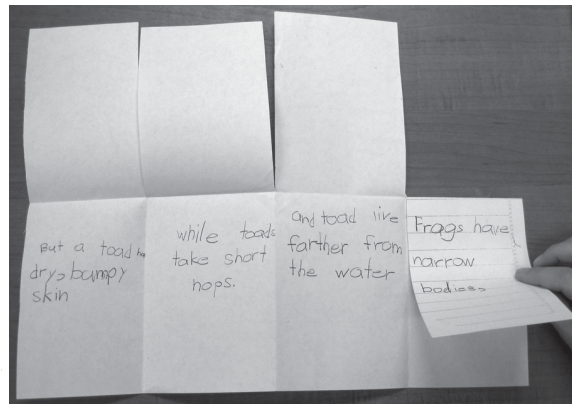 But a toad has
dry, bumpy
skin
while toads
take short
hops.
and toad live
farther from
the water
Frags have
narrow
bodies,